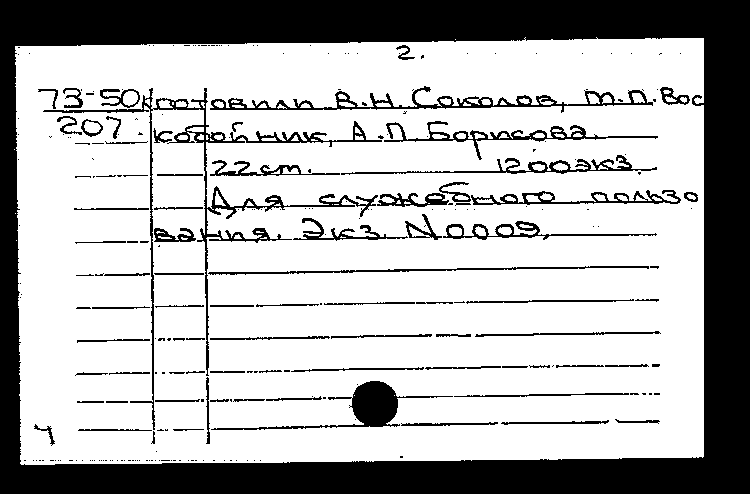 2.
73-50к готовили В.Н. Соколов, т.п. Вос
207 кобойник, А.П. Борисова.
22 ст. 1200 экз.
Для служебного пользо
вания. Экз. N 0009.
ч